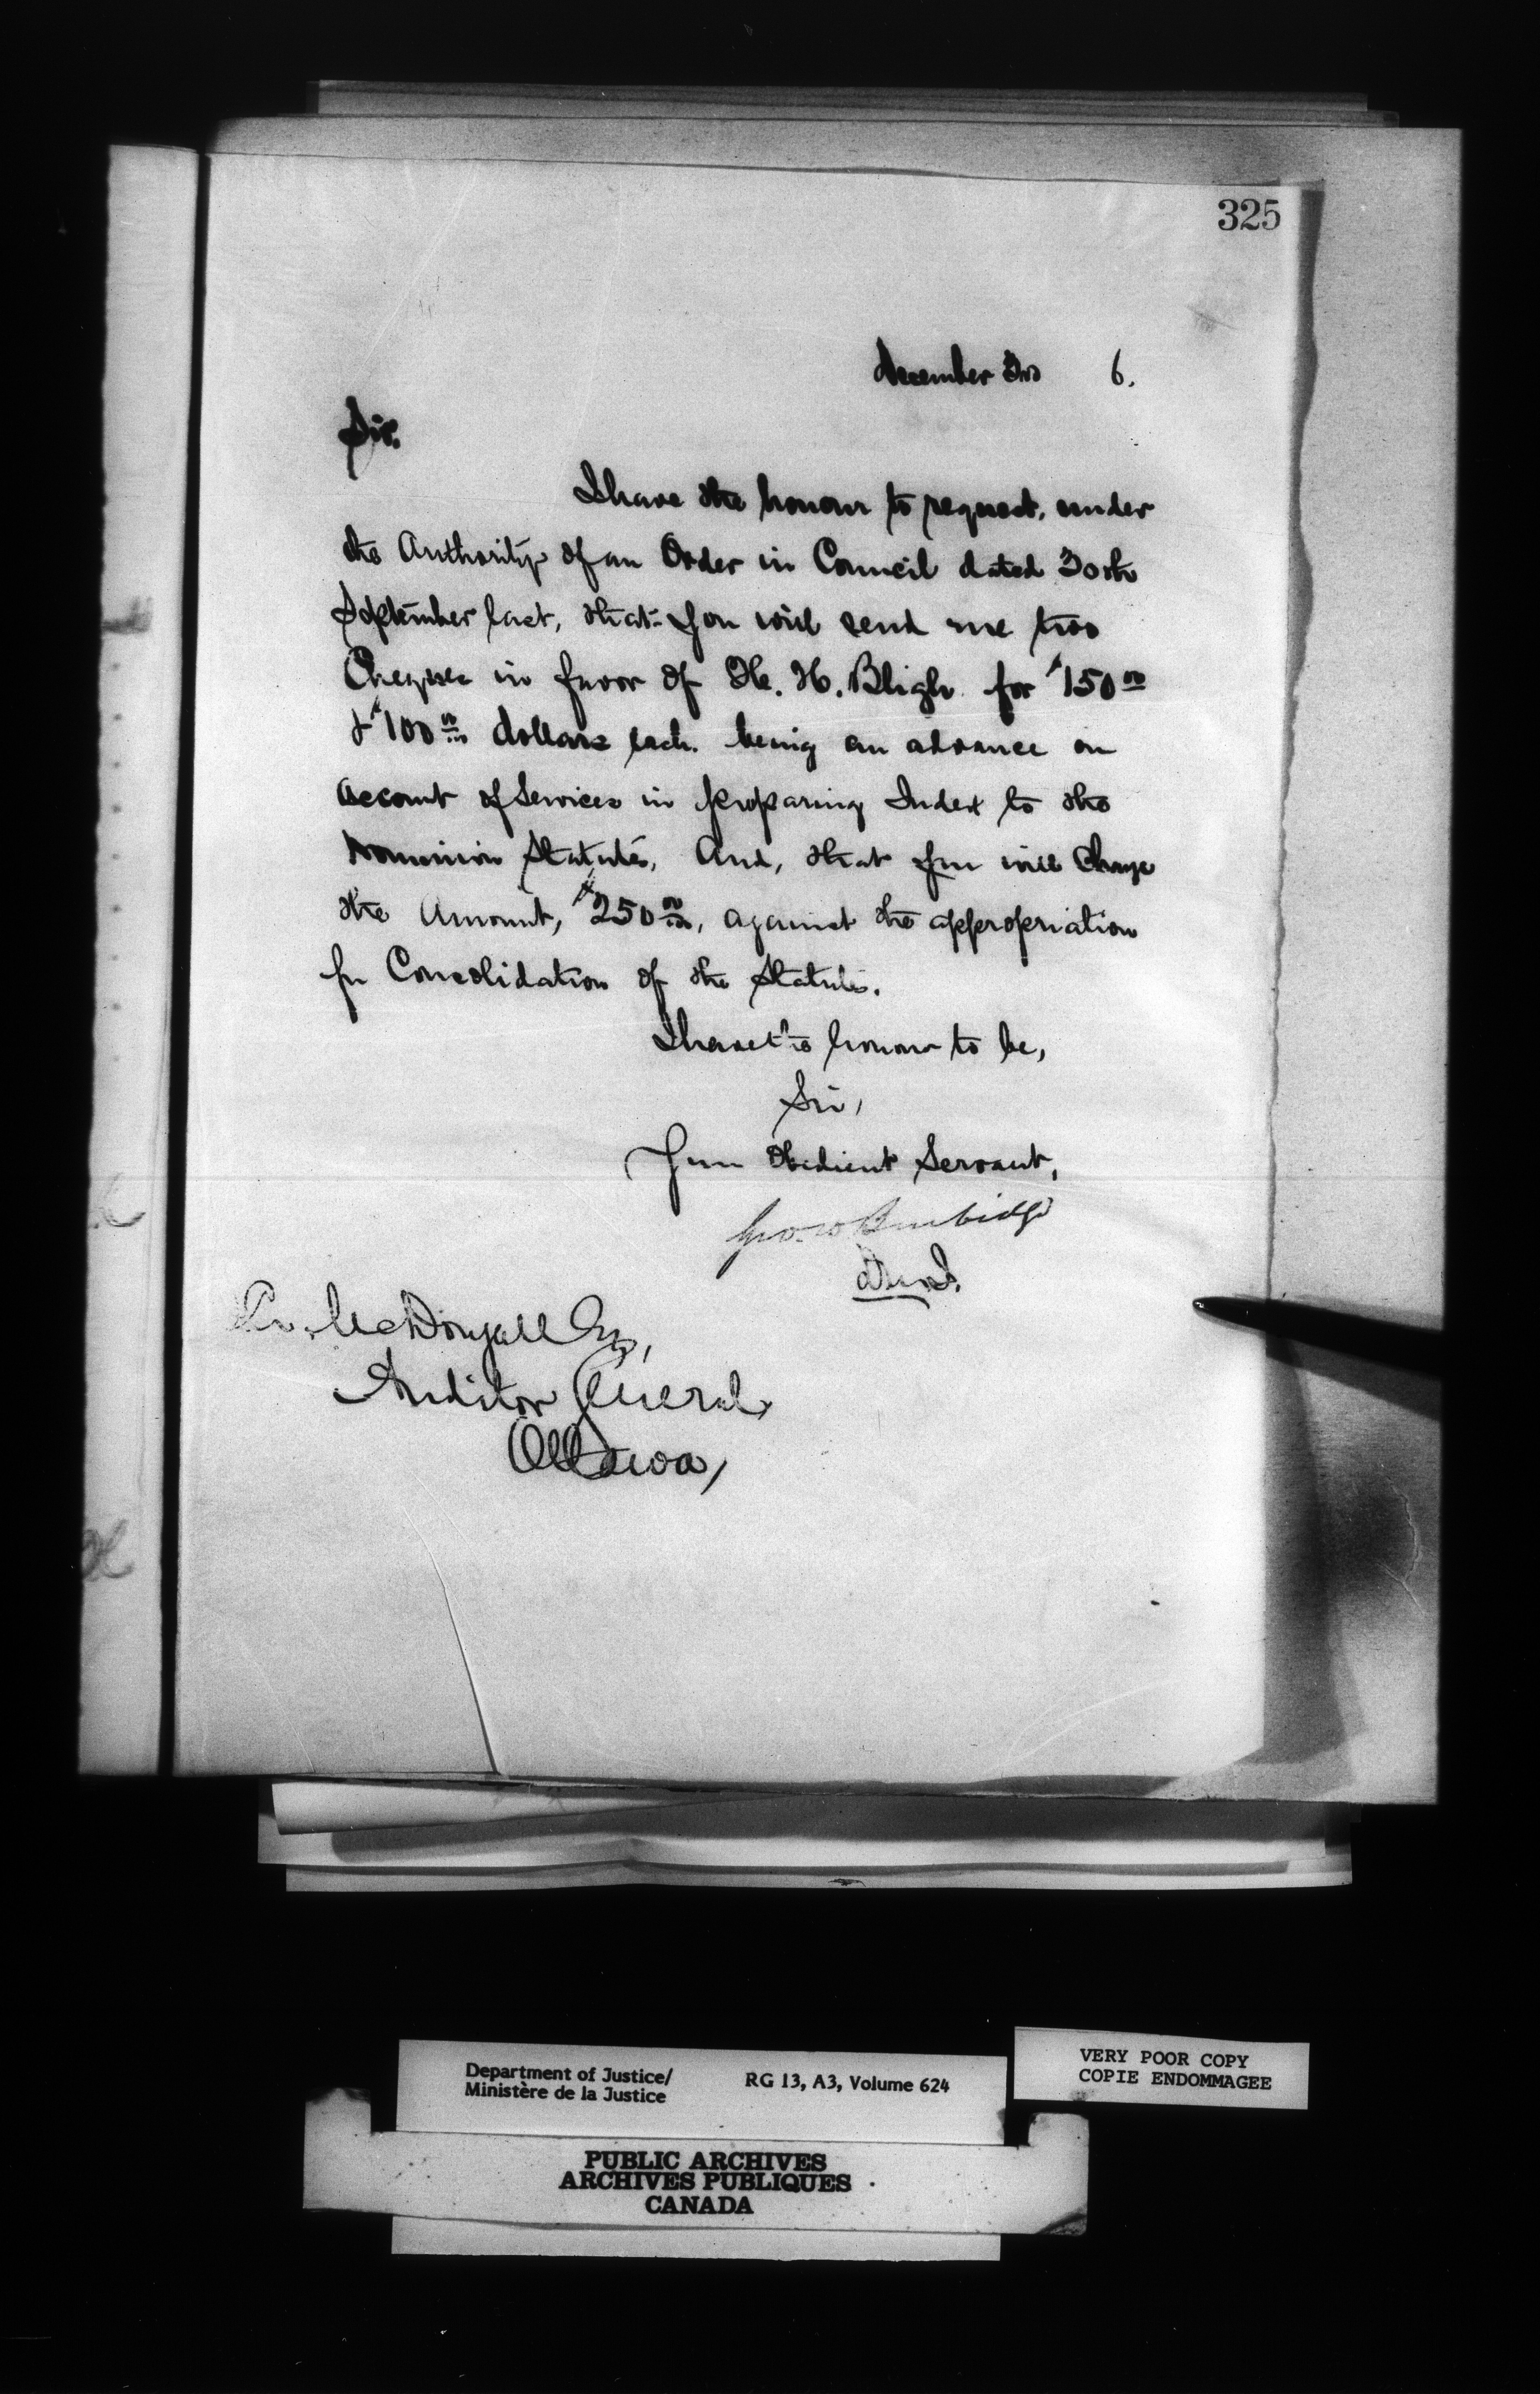 325
December 3rd 6.
Sir.
I have the honour to request, under
the Authority of an Order in Council dated 30th
September last, that you will send me two
Cheques in favor of H. H. Bligh for $150 00
& $100 00 dollars each. being an advance on
Account of Services in preparing Index to the
Dominion Statutes, And, that you will Charge
the Amount, $250 00, against the appropriation
for Consolidation of the Statutes.
I have the honour to be,
Sir,
Your Obedient Servant,
Geo. W Burbidge
D.M.J.
McDougall Esq,
Auditor General,
Ottawa,
Department of Justice/
Ministère de la Justice
RG 13, A3, Volume 624
VERY POOR COPY
COPIE ENDOMMAGEE
PUBLIC ARCHIVES
ARCHIVES PUBLIQUES
CANADA